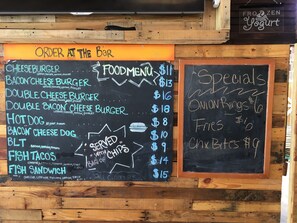 FROZEN
Yogurt
ORDER AT THE BAR
FOOD MENU
CHEESEBURGER $11
BACON CHEESE BURGER $13
DOUBLE CHEESE BURGER $16
DOUBLE BACON CHEESE BURGER $18
HOT DOG $8
BACON CHEESE DOG $10
BLT $9
FISH TACOS $14
FISH SANDWICH $15
SERVED
WITH
CHIPS
Specials
Onion Rings $6
Fries $6
Chx Bites $9